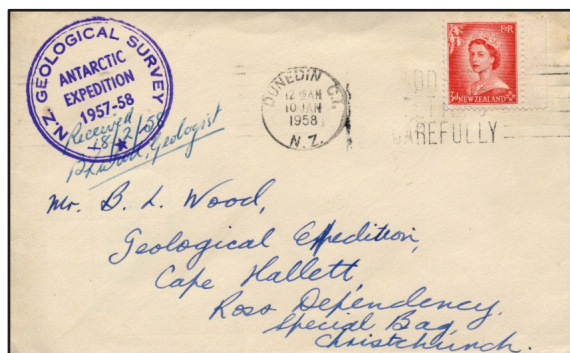 N.Z. GEOLOGICAL SURVEY
ANTARCTIC
EXPEDITION
1957-58
Received
18/2/58
B.L. Wood, Geologist
DUNEDIN C.1.
12 30 AM
10 JAN
1958
N.Z.
CAREFULLY
E R
3d NEW ZEALAND
Mr. B. L. Wood,
Geological Expedition,
Cape Hallett,
Ross Dependency,
Special Bag,
Christchurch.